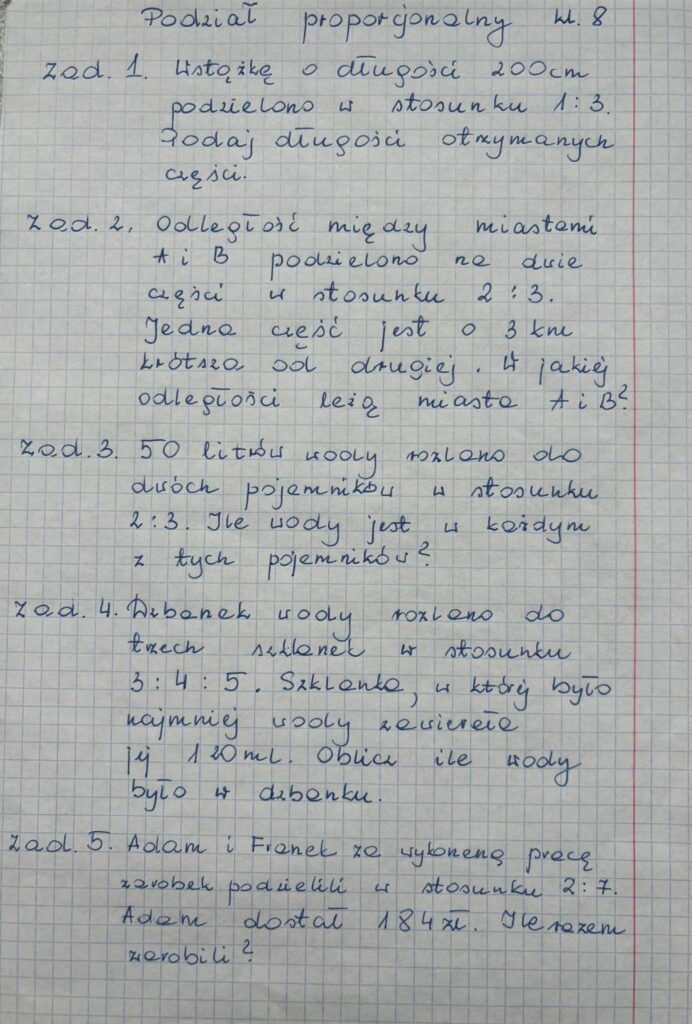 Podział proporcjonalny kl. 8
Zad. 1. Wstążkę o długości 200cm
podzielono w stosunku 1:3.
Podaj długości otrzymanych
części.
Zad. 2. Odległość między miastami
A i B podzielono na dwie
części w stosunku 2:3.
Jedna część jest o 3 km
krótsza od drugiej. W jakiej
odległości leżą miasta A i B?
Zad. 3. 50 litrów wody rozlano do
dwóch pojemników w stosunku
2:3. Ile wody jest w każdym
z tych pojemników?
Zad. 4. Dzbanek wody rozlano do
trzech szklanek w stosunku
3:4:5. Szklanka, w której było
najmniej wody zawierała
jej 120ml. Oblicz ile wody
było w dzbanku.
Zad. 5. Adam i Franek za wykonaną pracę
zarobek podzielili w stosunku 2:7.
Adam dostał 184zł. Ile razem
zarobili?